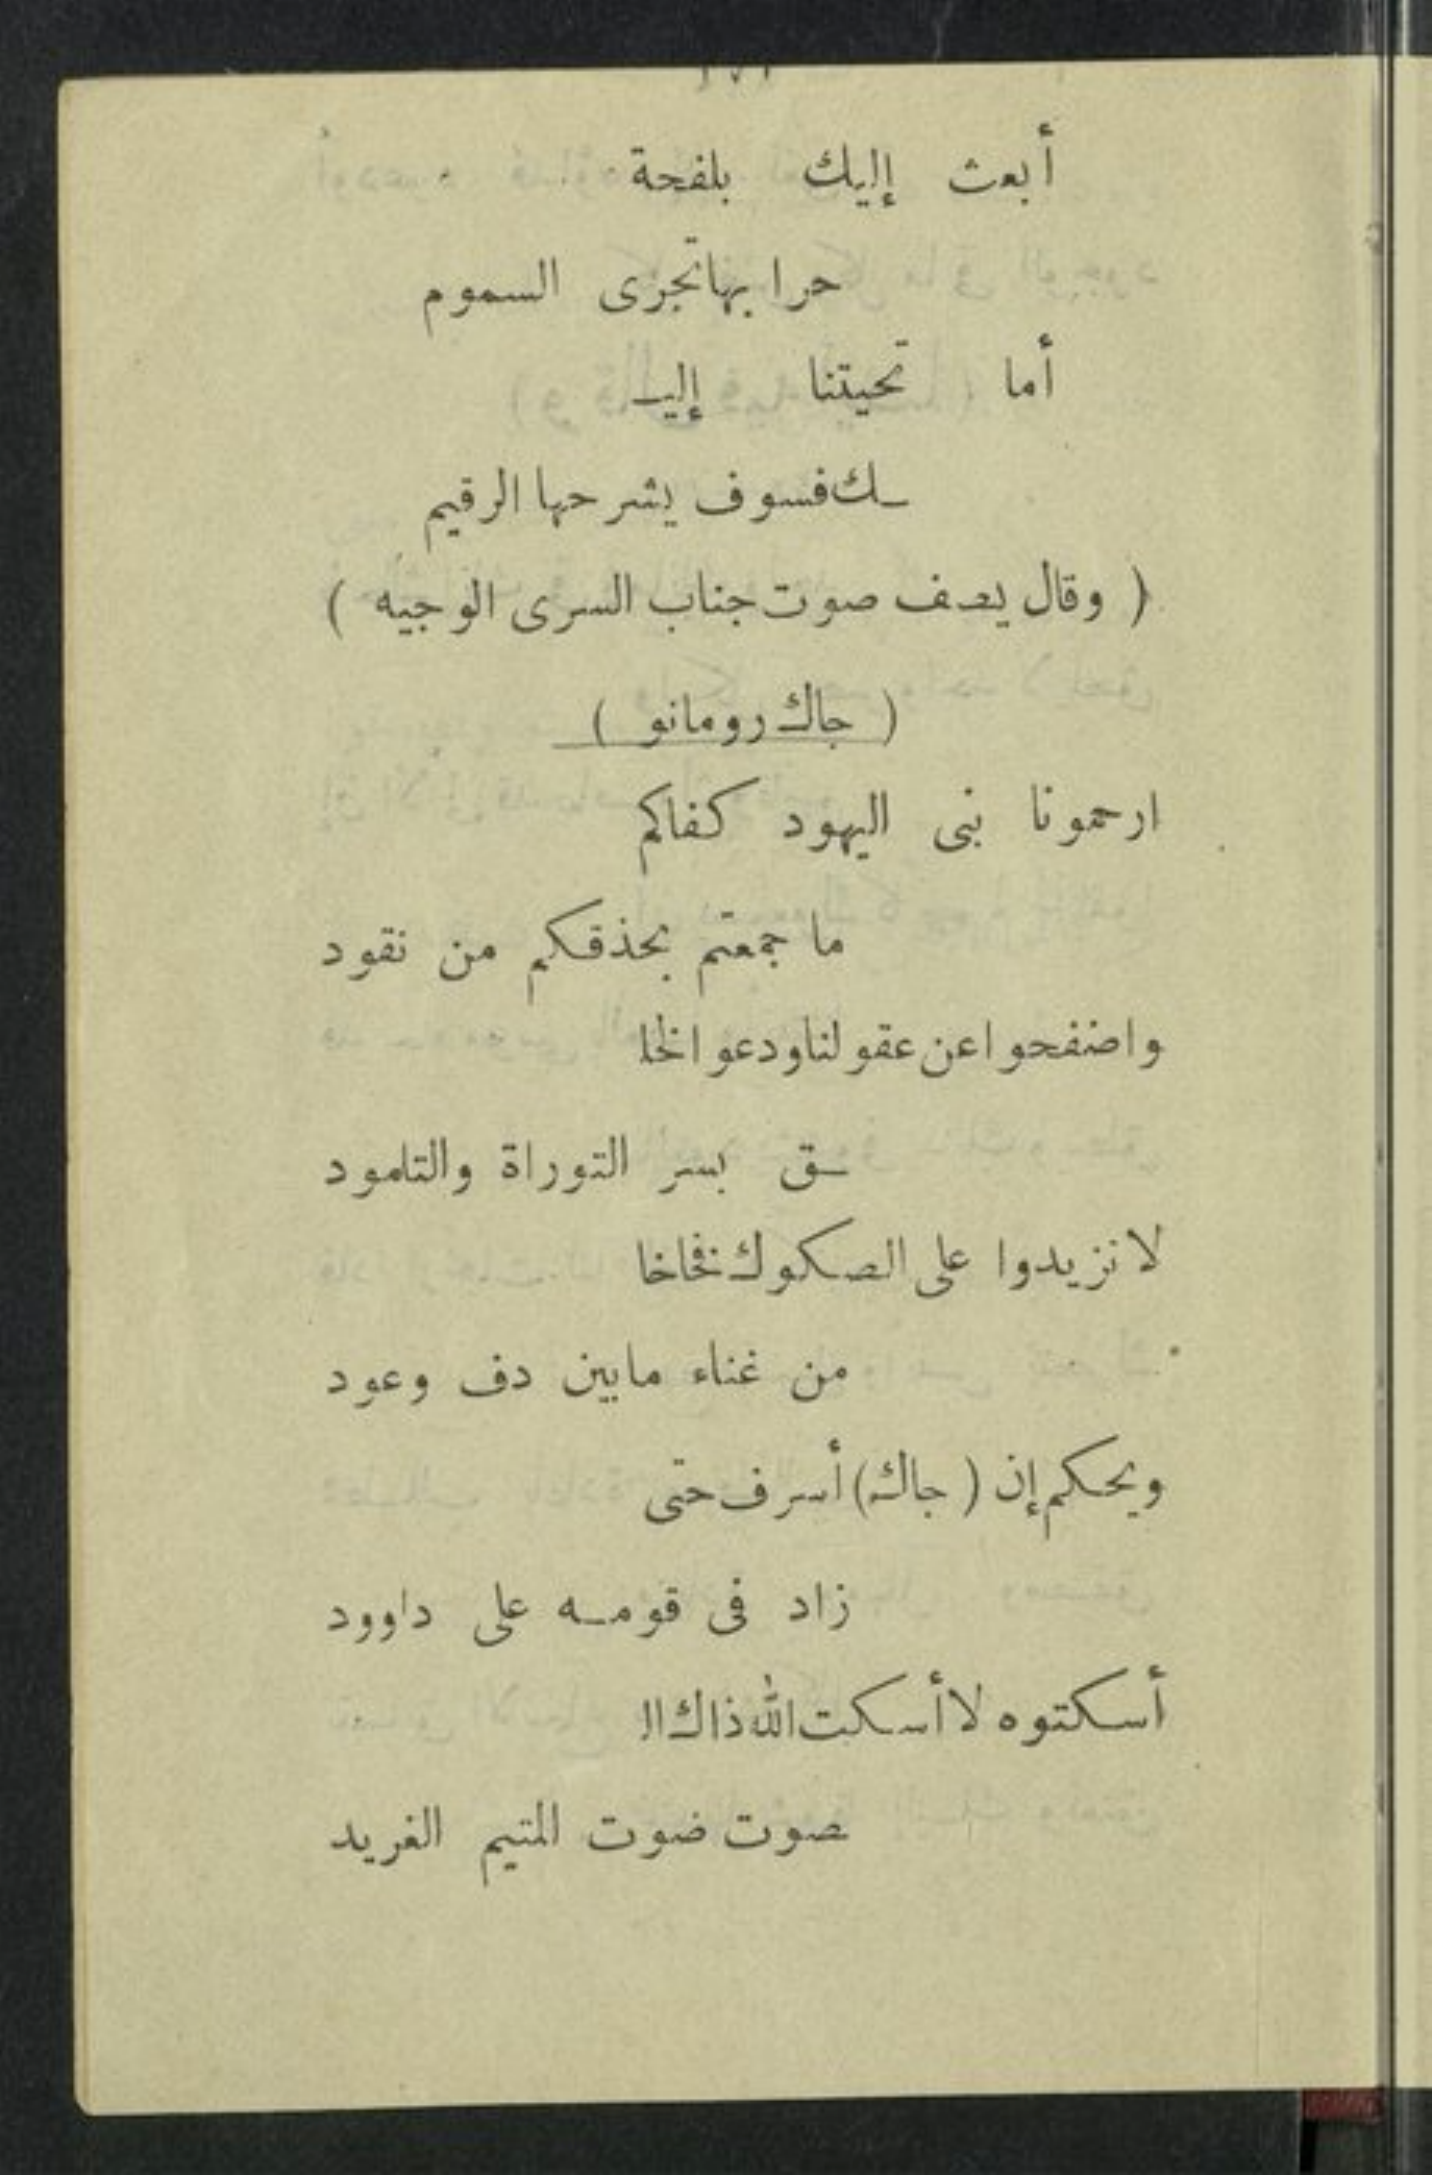 أبعث إليك بلفحة
حرا بها تجرى السموم
أما تحيتنا إليـ
ـك فسوف يشرحها الرقيم
( وقال يصف صوت جناب السرى الوجيه )
( جاك رومانو )
ارحمونا بنى اليهود كفاكم
ما جمعتم بحذقكم من نقود
واصفحوا عن عقولنا ودعوا الخلـ
ـق بسر التوراة والتلمود
لا تزيدوا على الصكوك فخاخا
من غناء مابين دف وعود
ويحكم إن ( جاك ) أسرف حتى
زاد فى قومه على داوود
أسكتوه لا أسكت الله ذاك الـ
ـصوت صوت المتيم الغريد